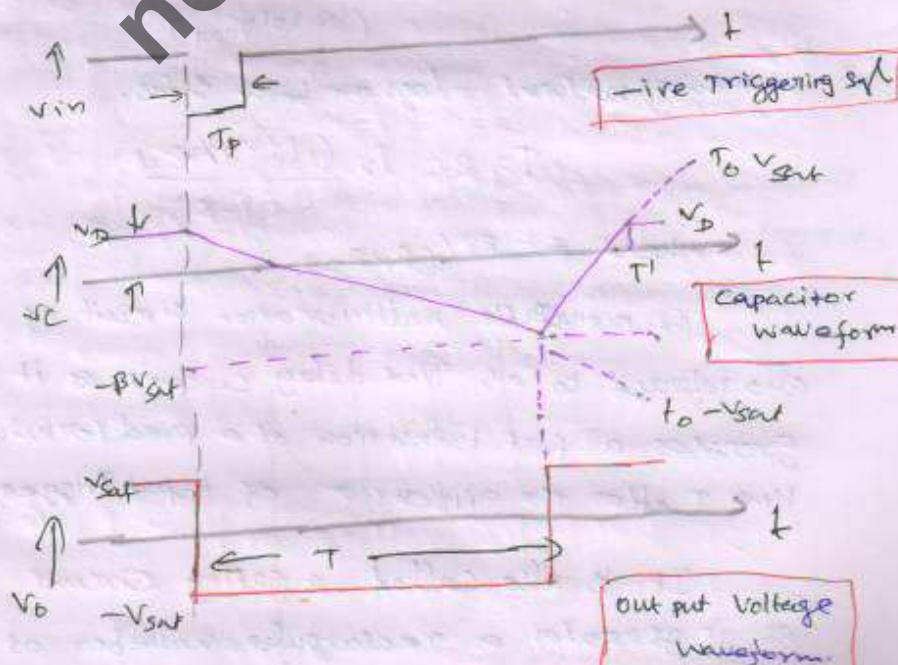 no
t
Vin
Tp
-ive Triggering Sgl
To Vsat
VD
VD
T'
t
Vc
Capacitor
waveform
-βVsat
to -Vsat
Vsat
t
T
Vo
-Vsat
output Voltage
waveform.